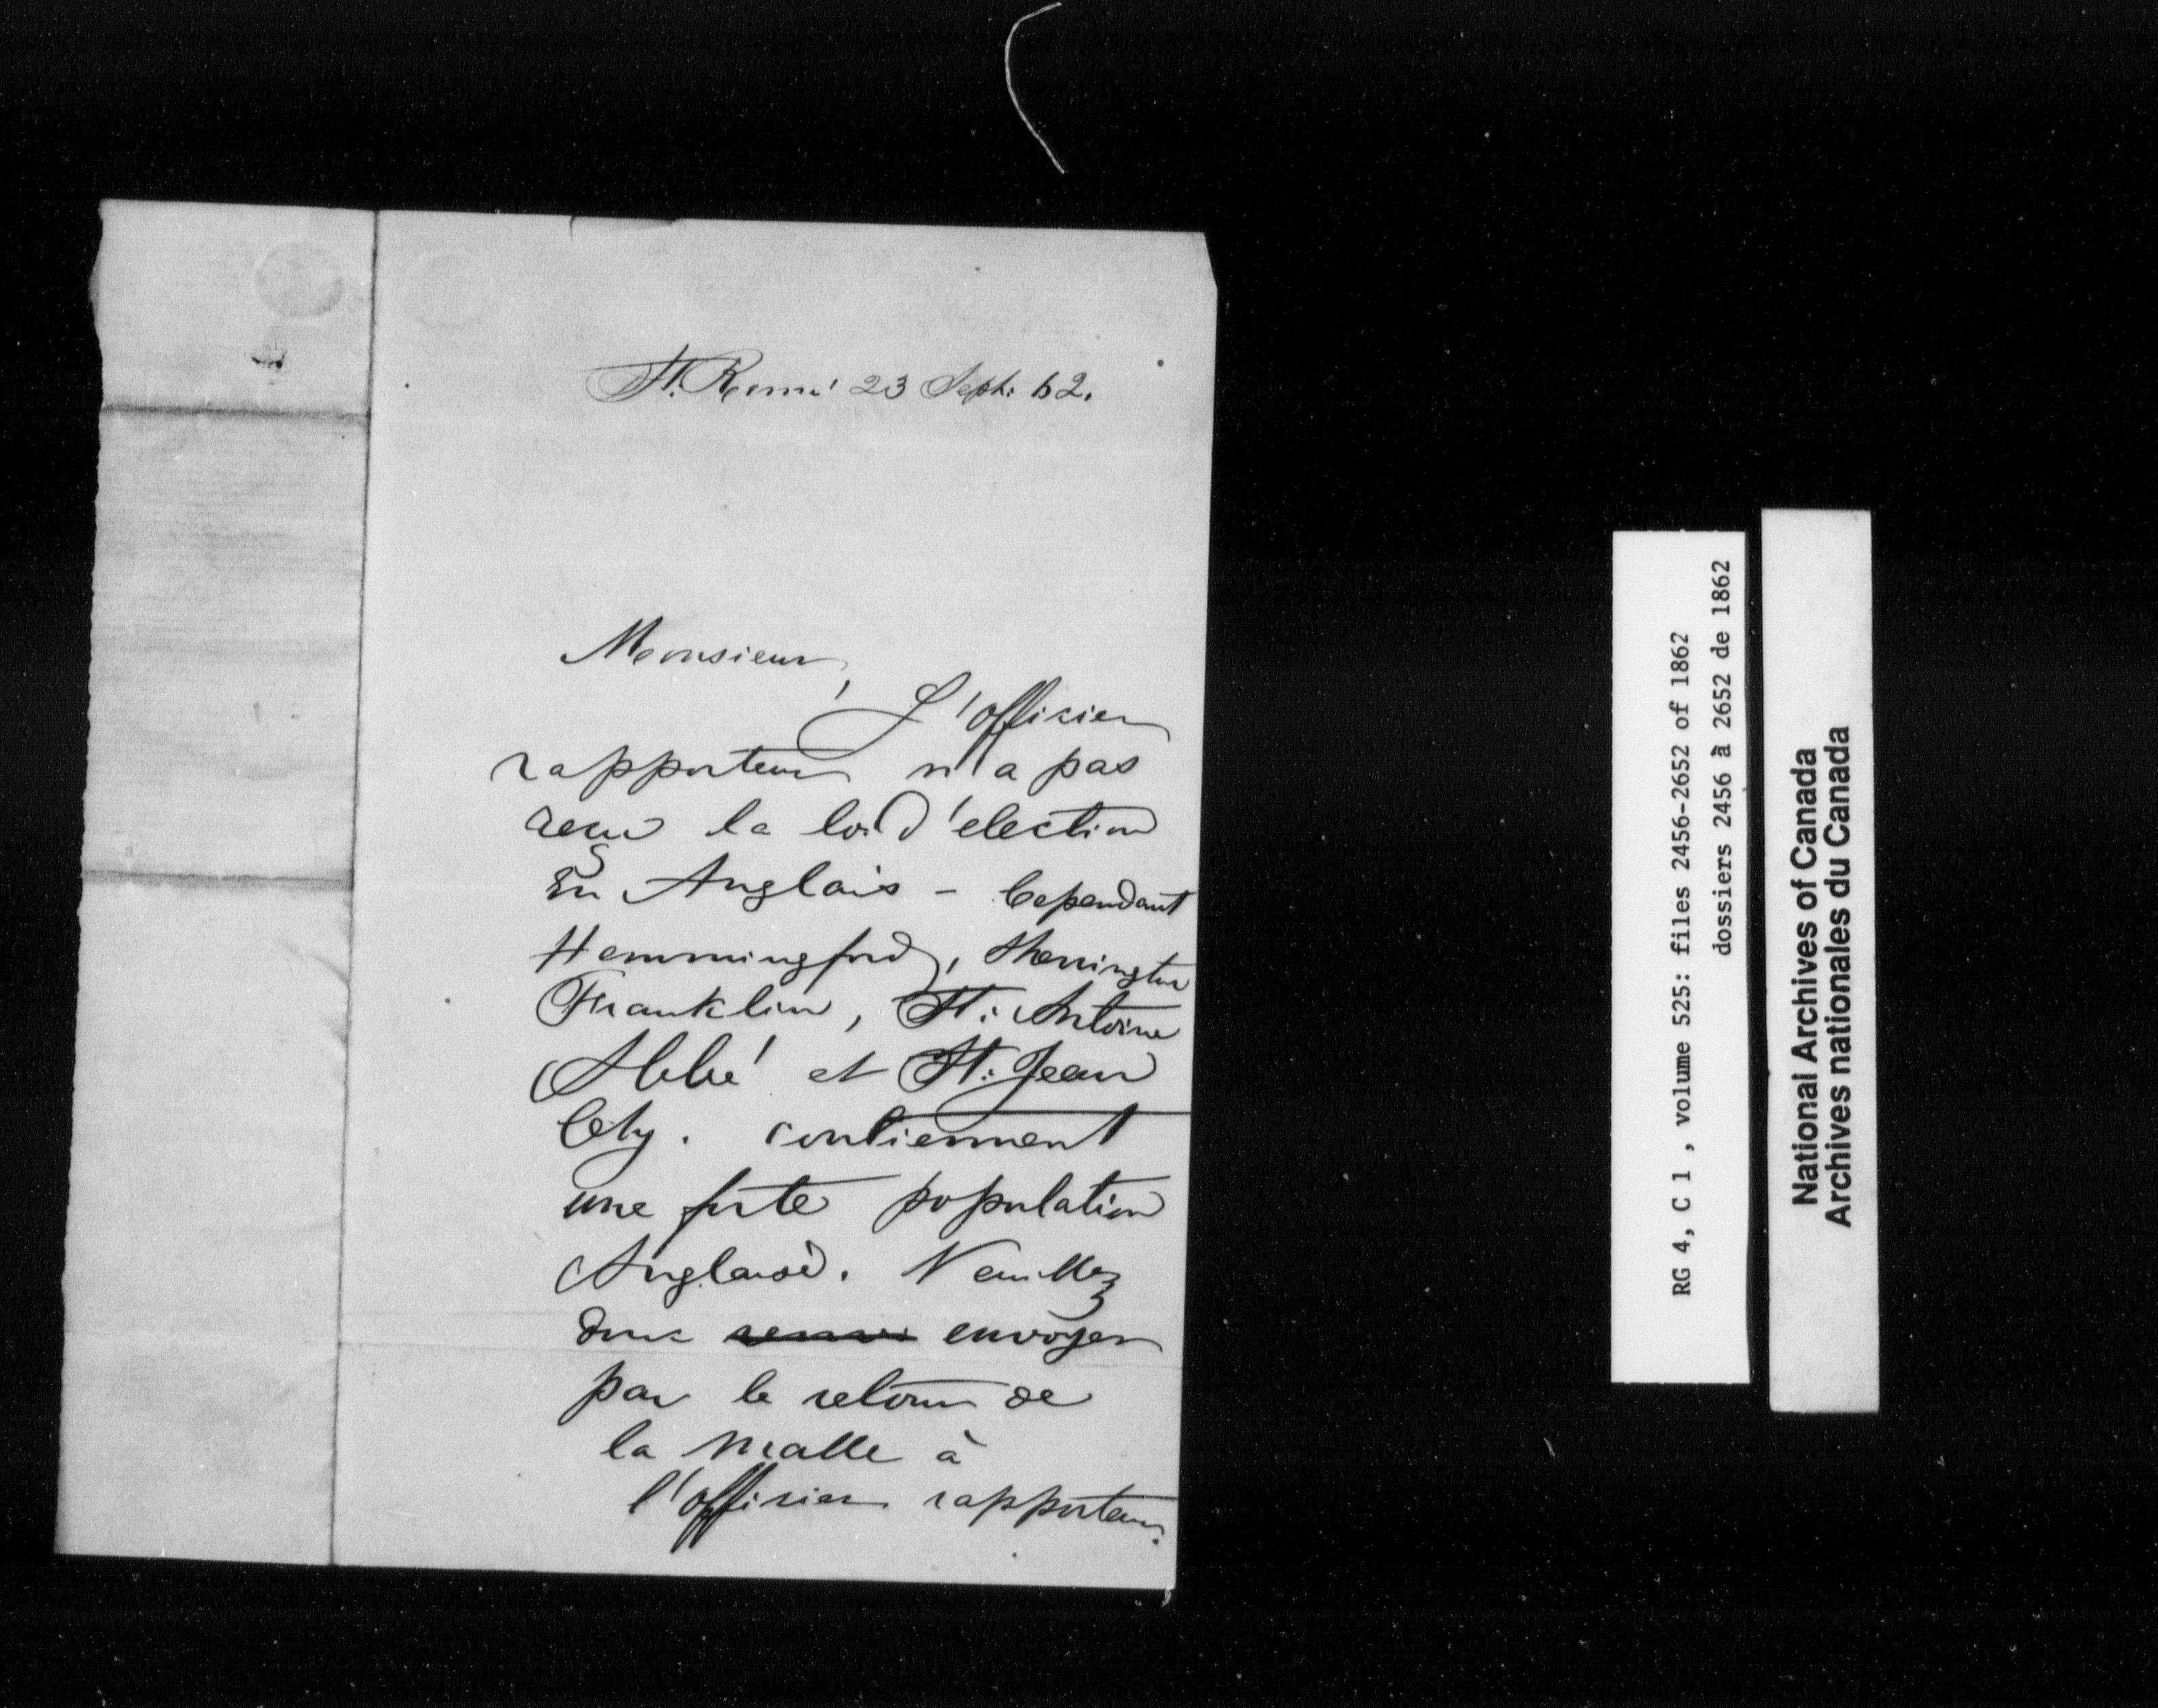 St. Remi 23 Sept: 62.
Monsieur,
L'officier
rapporteur n'a pas
recu la loi d'election
En Anglais - Cependant
Hemmingford, Sherrington
Franklin, St: Antoine
Abbé et St: Jean
Chy. contiennent
une forte population
Anglaise. Veuillez
donc envoyer
par le retour de
la Malle à
l'officier rapporteur.
RG 4, C 1 , volume 525: files 2456-2652 of 1862
dossiers 2456 à 2652 de 1862
National Archives of Canada
Archives nationales du Canada